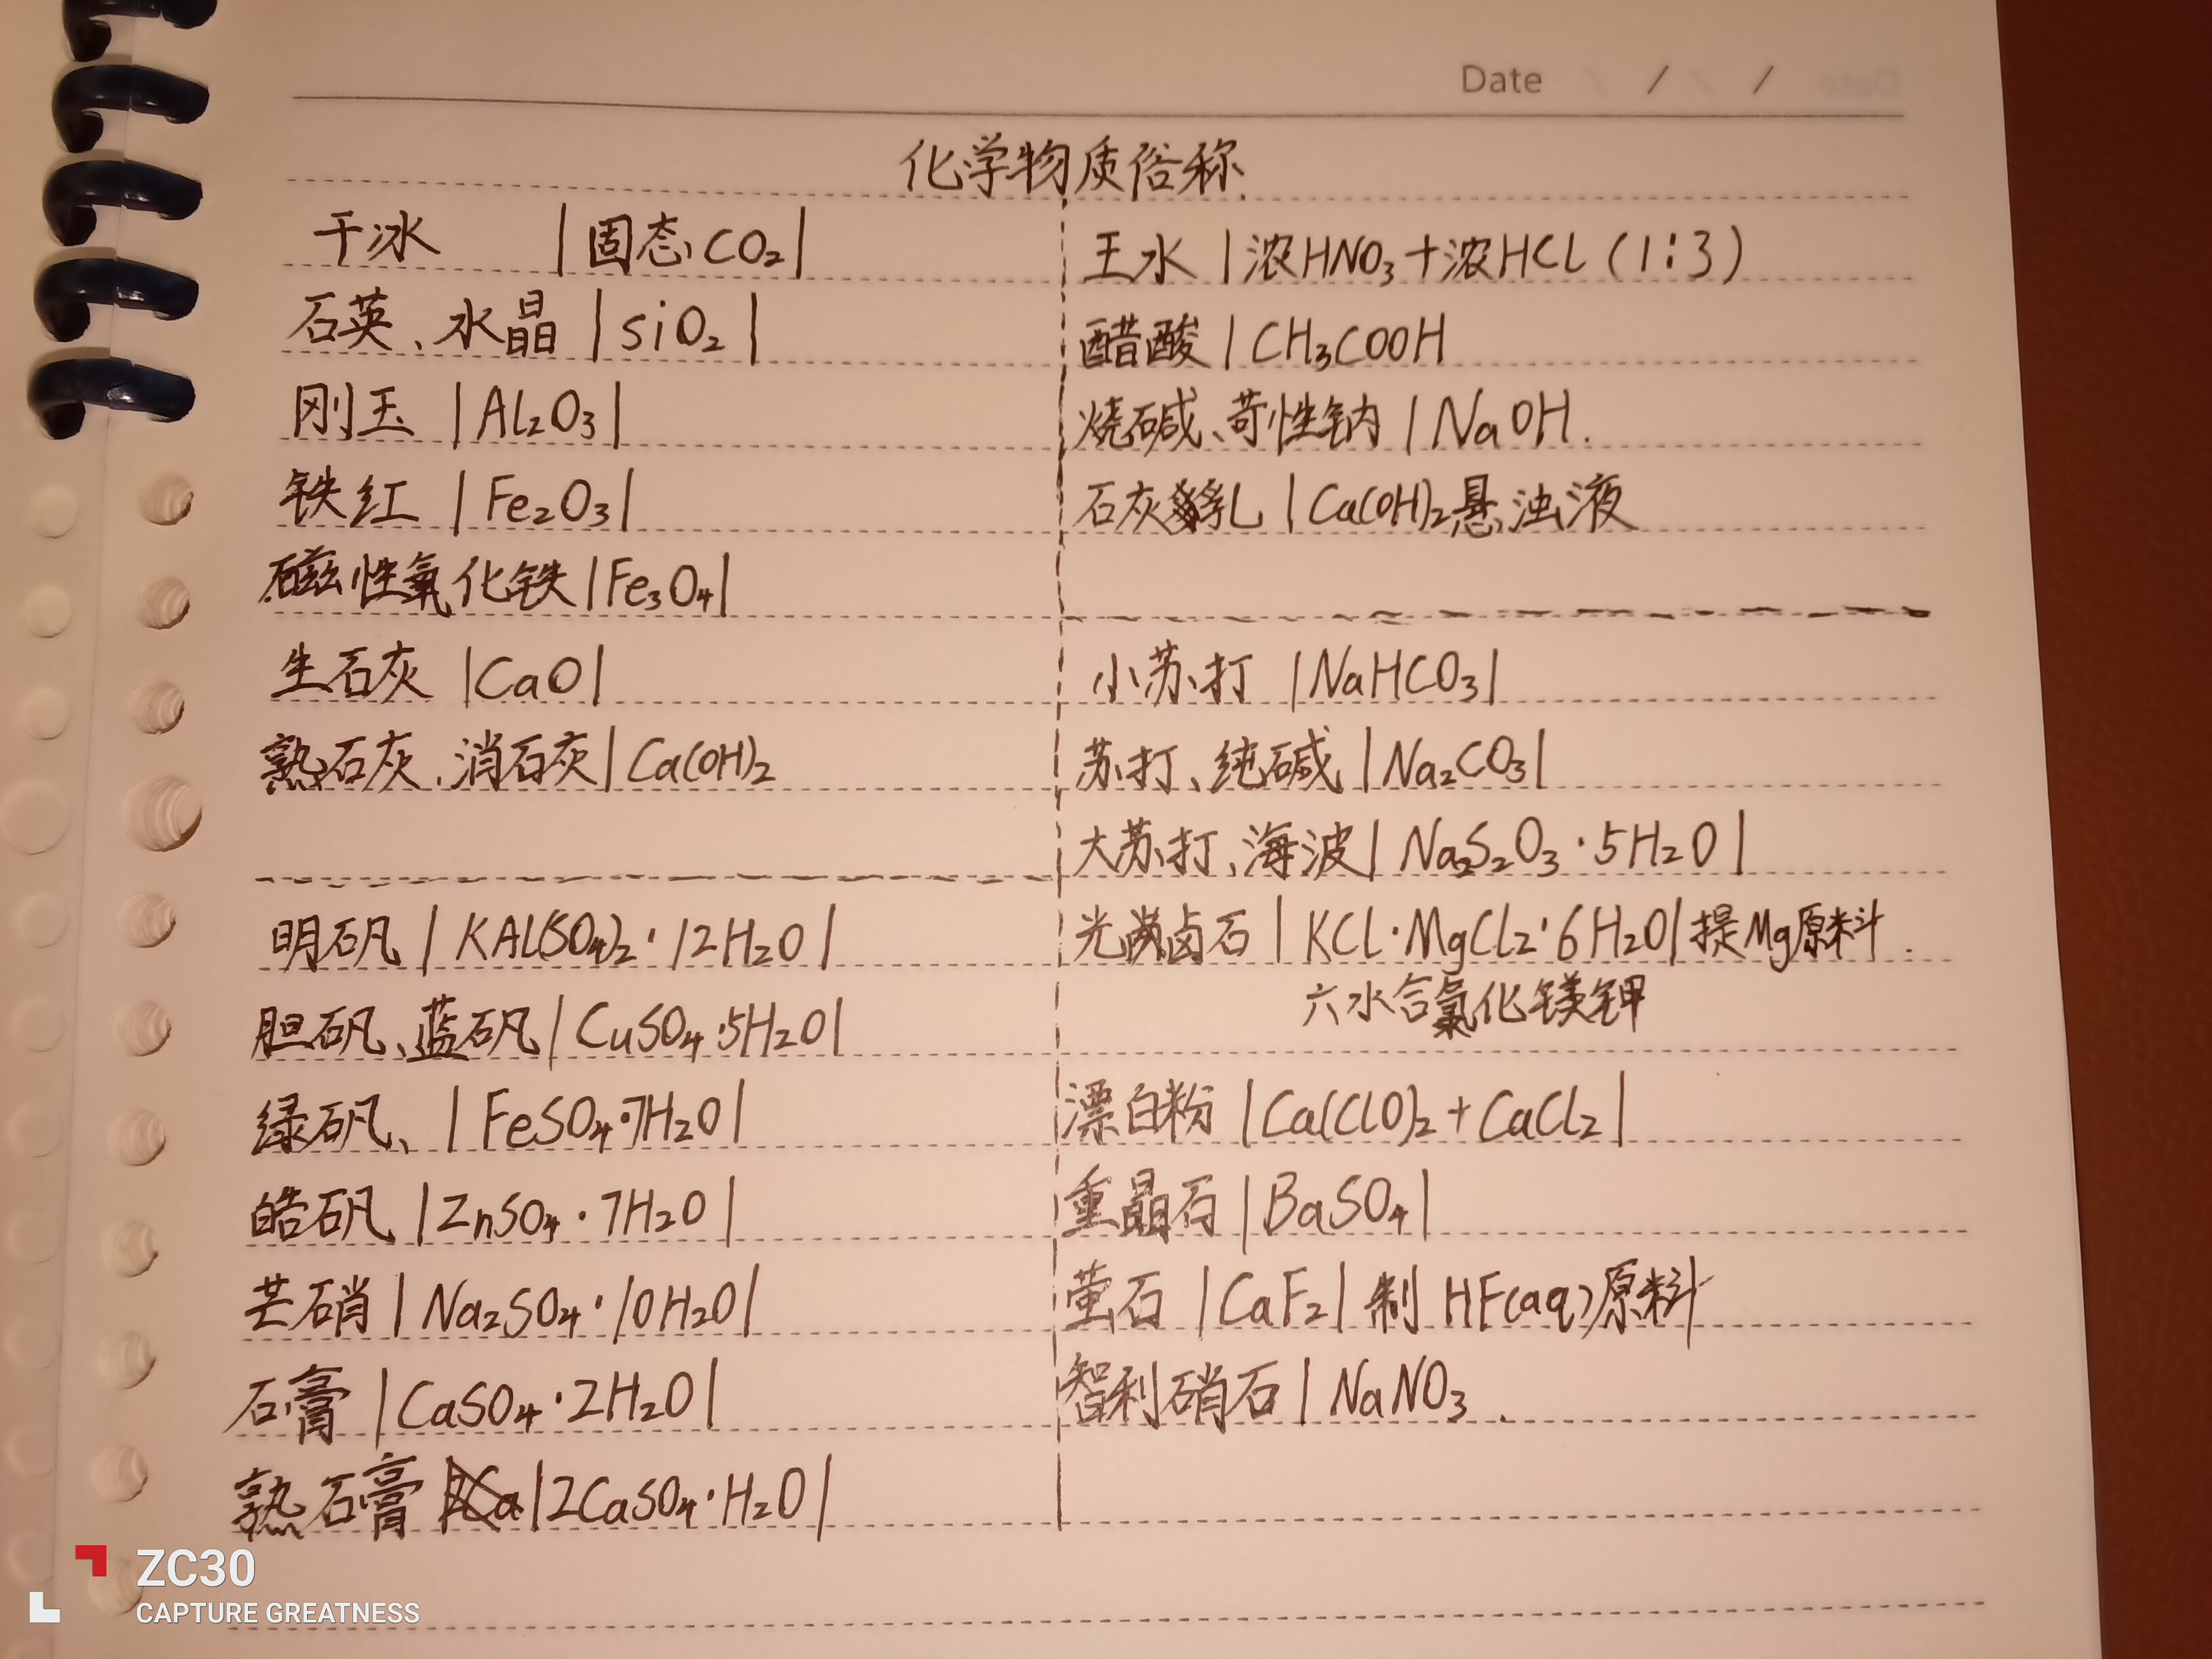 Date / /
化学物质俗称
干冰 | 固态CO₂ |
石英、水晶 | SiO₂ |
刚玉 | Al₂O₃ |
铁红 | Fe₂O₃ |
磁性氧化铁 | Fe₃O₄ |
生石灰 | CaO |
熟石灰、消石灰 | Ca(OH)₂
明矾 | KAl(SO₄)₂·12H₂O |
胆矾、蓝矾 | CuSO₄·5H₂O |
绿矾、 | FeSO₄·7H₂O |
皓矾 | ZnSO₄·7H₂O |
芒硝 | Na₂SO₄·10H₂O |
石膏 | CaSO₄·2H₂O |
熟石膏 | 2CaSO₄·H₂O |
王水 | 浓HNO₃+浓HCl(1:3)
醋酸 | CH₃COOH
烧碱、苛性钠 | NaOH.
石灰乳 | Ca(OH)₂悬浊液
小苏打 | NaHCO₃ |
苏打、纯碱 | Na₂CO₃ |
大苏打、海波 | Na₂S₂O₃·5H₂O |
光卤石 | KCl·MgCl₂·6H₂O | 提Mg原料.
六水合氯化镁钾
漂白粉 | Ca(ClO)₂+CaCl₂ |
重晶石 | BaSO₄ |
萤石 | CaF₂ | 制HF(aq)原料
智利硝石 | NaNO₃.
ZC30
CAPTURE GREATNESS